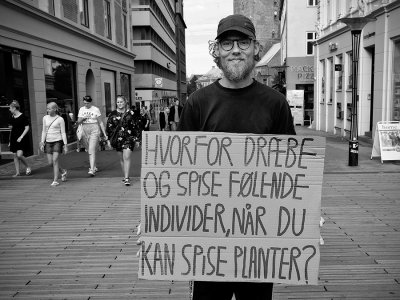 HVORFOR DRÆBE
OG SPISE FØLENDE
INDIVIDER, NÅR DU
KAN SPISE PLANTER?